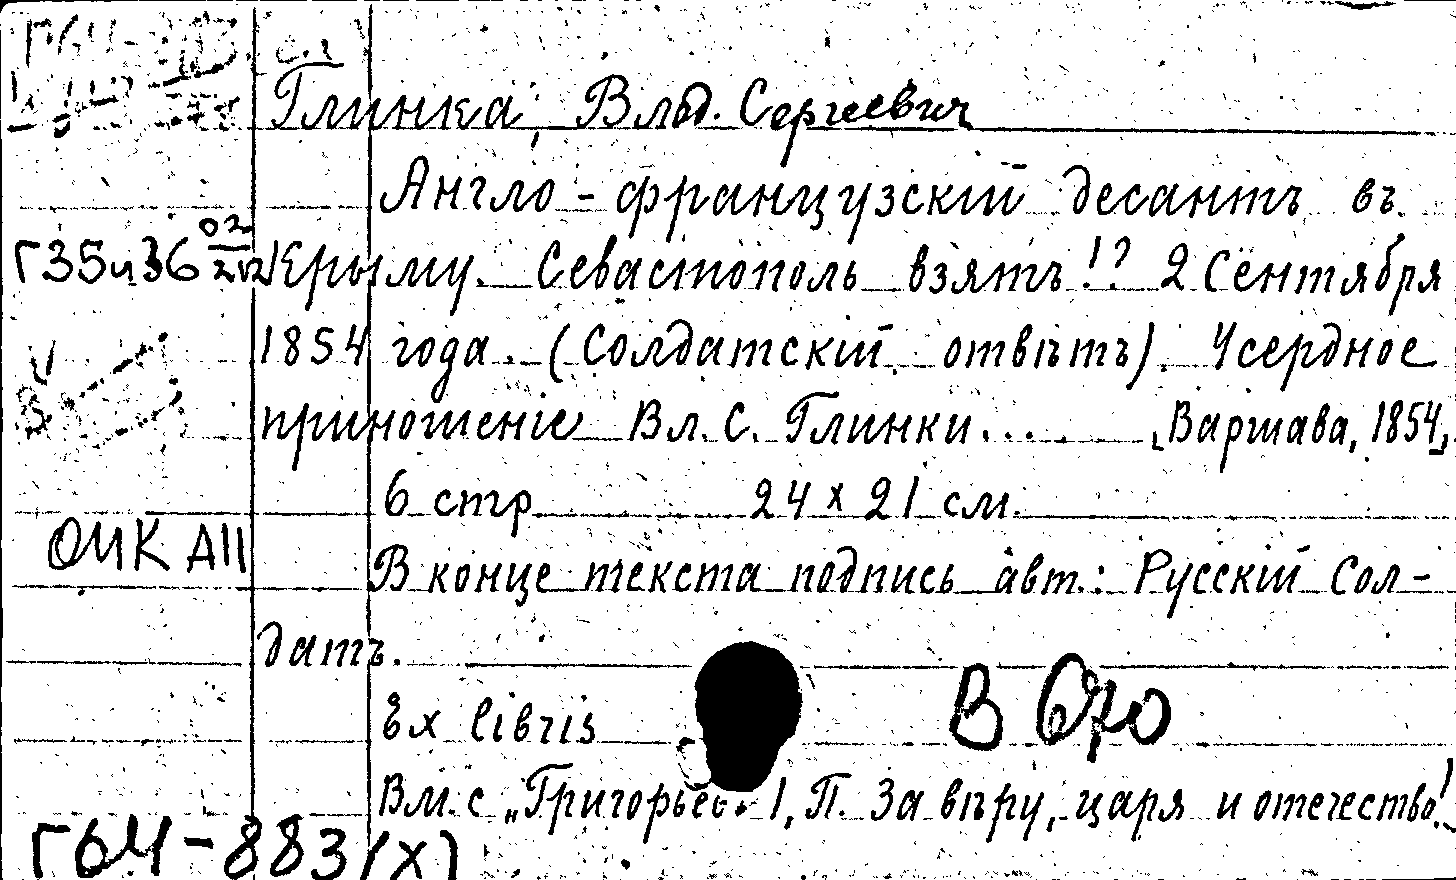 Глинка, Влад. Сергеевич
Англо-французскій десантъ въ
Г35и36 02
Крыму. Севастополь взятъ!? 2 Сентября
1854 года. (Солдатскій отвѣтъ). Усердное
приношеніе Вл. С. Глинки.... [Варшава, 1854],
6 стр 24 x 21 см.
ОИК АII
В конце текста подпись авт.: Русскій Сол-
датъ.
Ex libris
В 670
Вм. с „Григорьев 1, П. За вѣру, царя и отечество!
Г64-883(х)